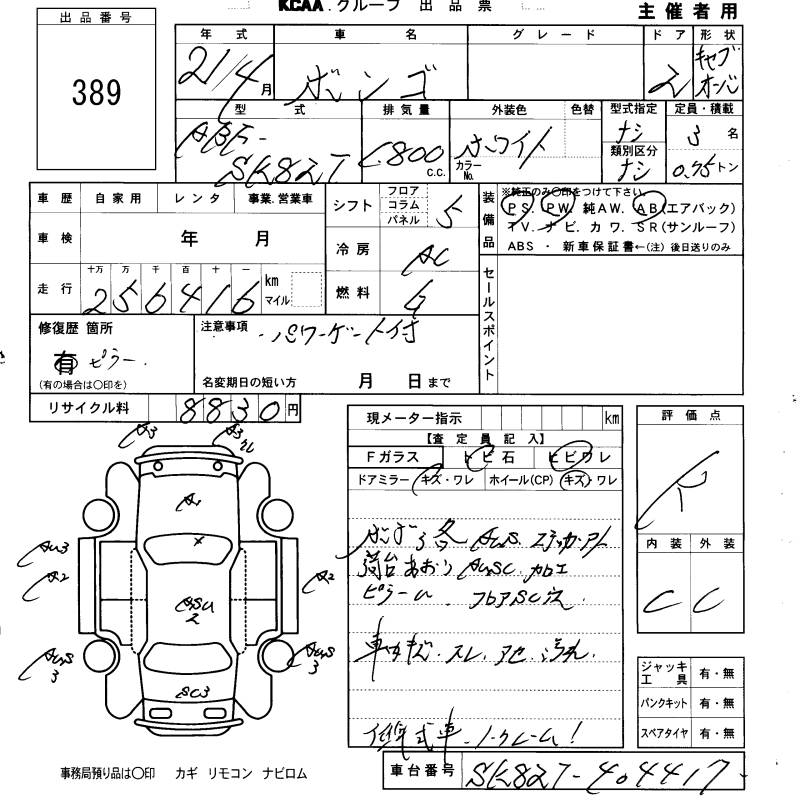 KCAA.グループ 出品票
主催者用
出品番号
389
年式 車名 グレード ドア 形状
21/4月 ボンゴ 2 キャブオーバ
型式 排気量 外装色 色替 型式指定 定員・積載
ABF-SK82T 1800 C.C. ホワイト カラーNo. ナシ 3名
類別区分 ナシ 0.75トン
車歴 自家用 レンタ 事業.営業車
車検 年 月
走行 十万 万 千 百 十 一
256416 km マイル
シフト フロア コラム パネル 5
冷房 AC
燃料 G
装備品
※純正のみ〇印をつけて下さい
PS. PW. 純AW. AB(エアバック)
TV. ナビ. カワ. SR(サンルーフ)
ABS ・ 新車保証書←(注) 後日送りのみ
セールスポイント
修復歴 箇所
有 ピラー.
(有の場合は〇印を)
注意事項 パワーゲート付
名変期日の短い方 月 日まで
リサイクル料 8830円
現メーター指示 km
【査定員記入】
Fガラス トビ石 ヒビワレ
ドアミラー キズ・ワレ ホイール(CP) キズ・ワレ
評価点
R
内装 外装
C C
A3 A3
A1
A2 A2
3 3
2
荷台あおり 加工
ピラーU フロアSC
スレ.
低年式車.ノークレーム!
ジャッキ工具 有・無
パンクキット 有・無
スペアタイヤ 有・無
事務局預り品は〇印 カギ リモコン ナビロム
車台番号 SK82T-404417